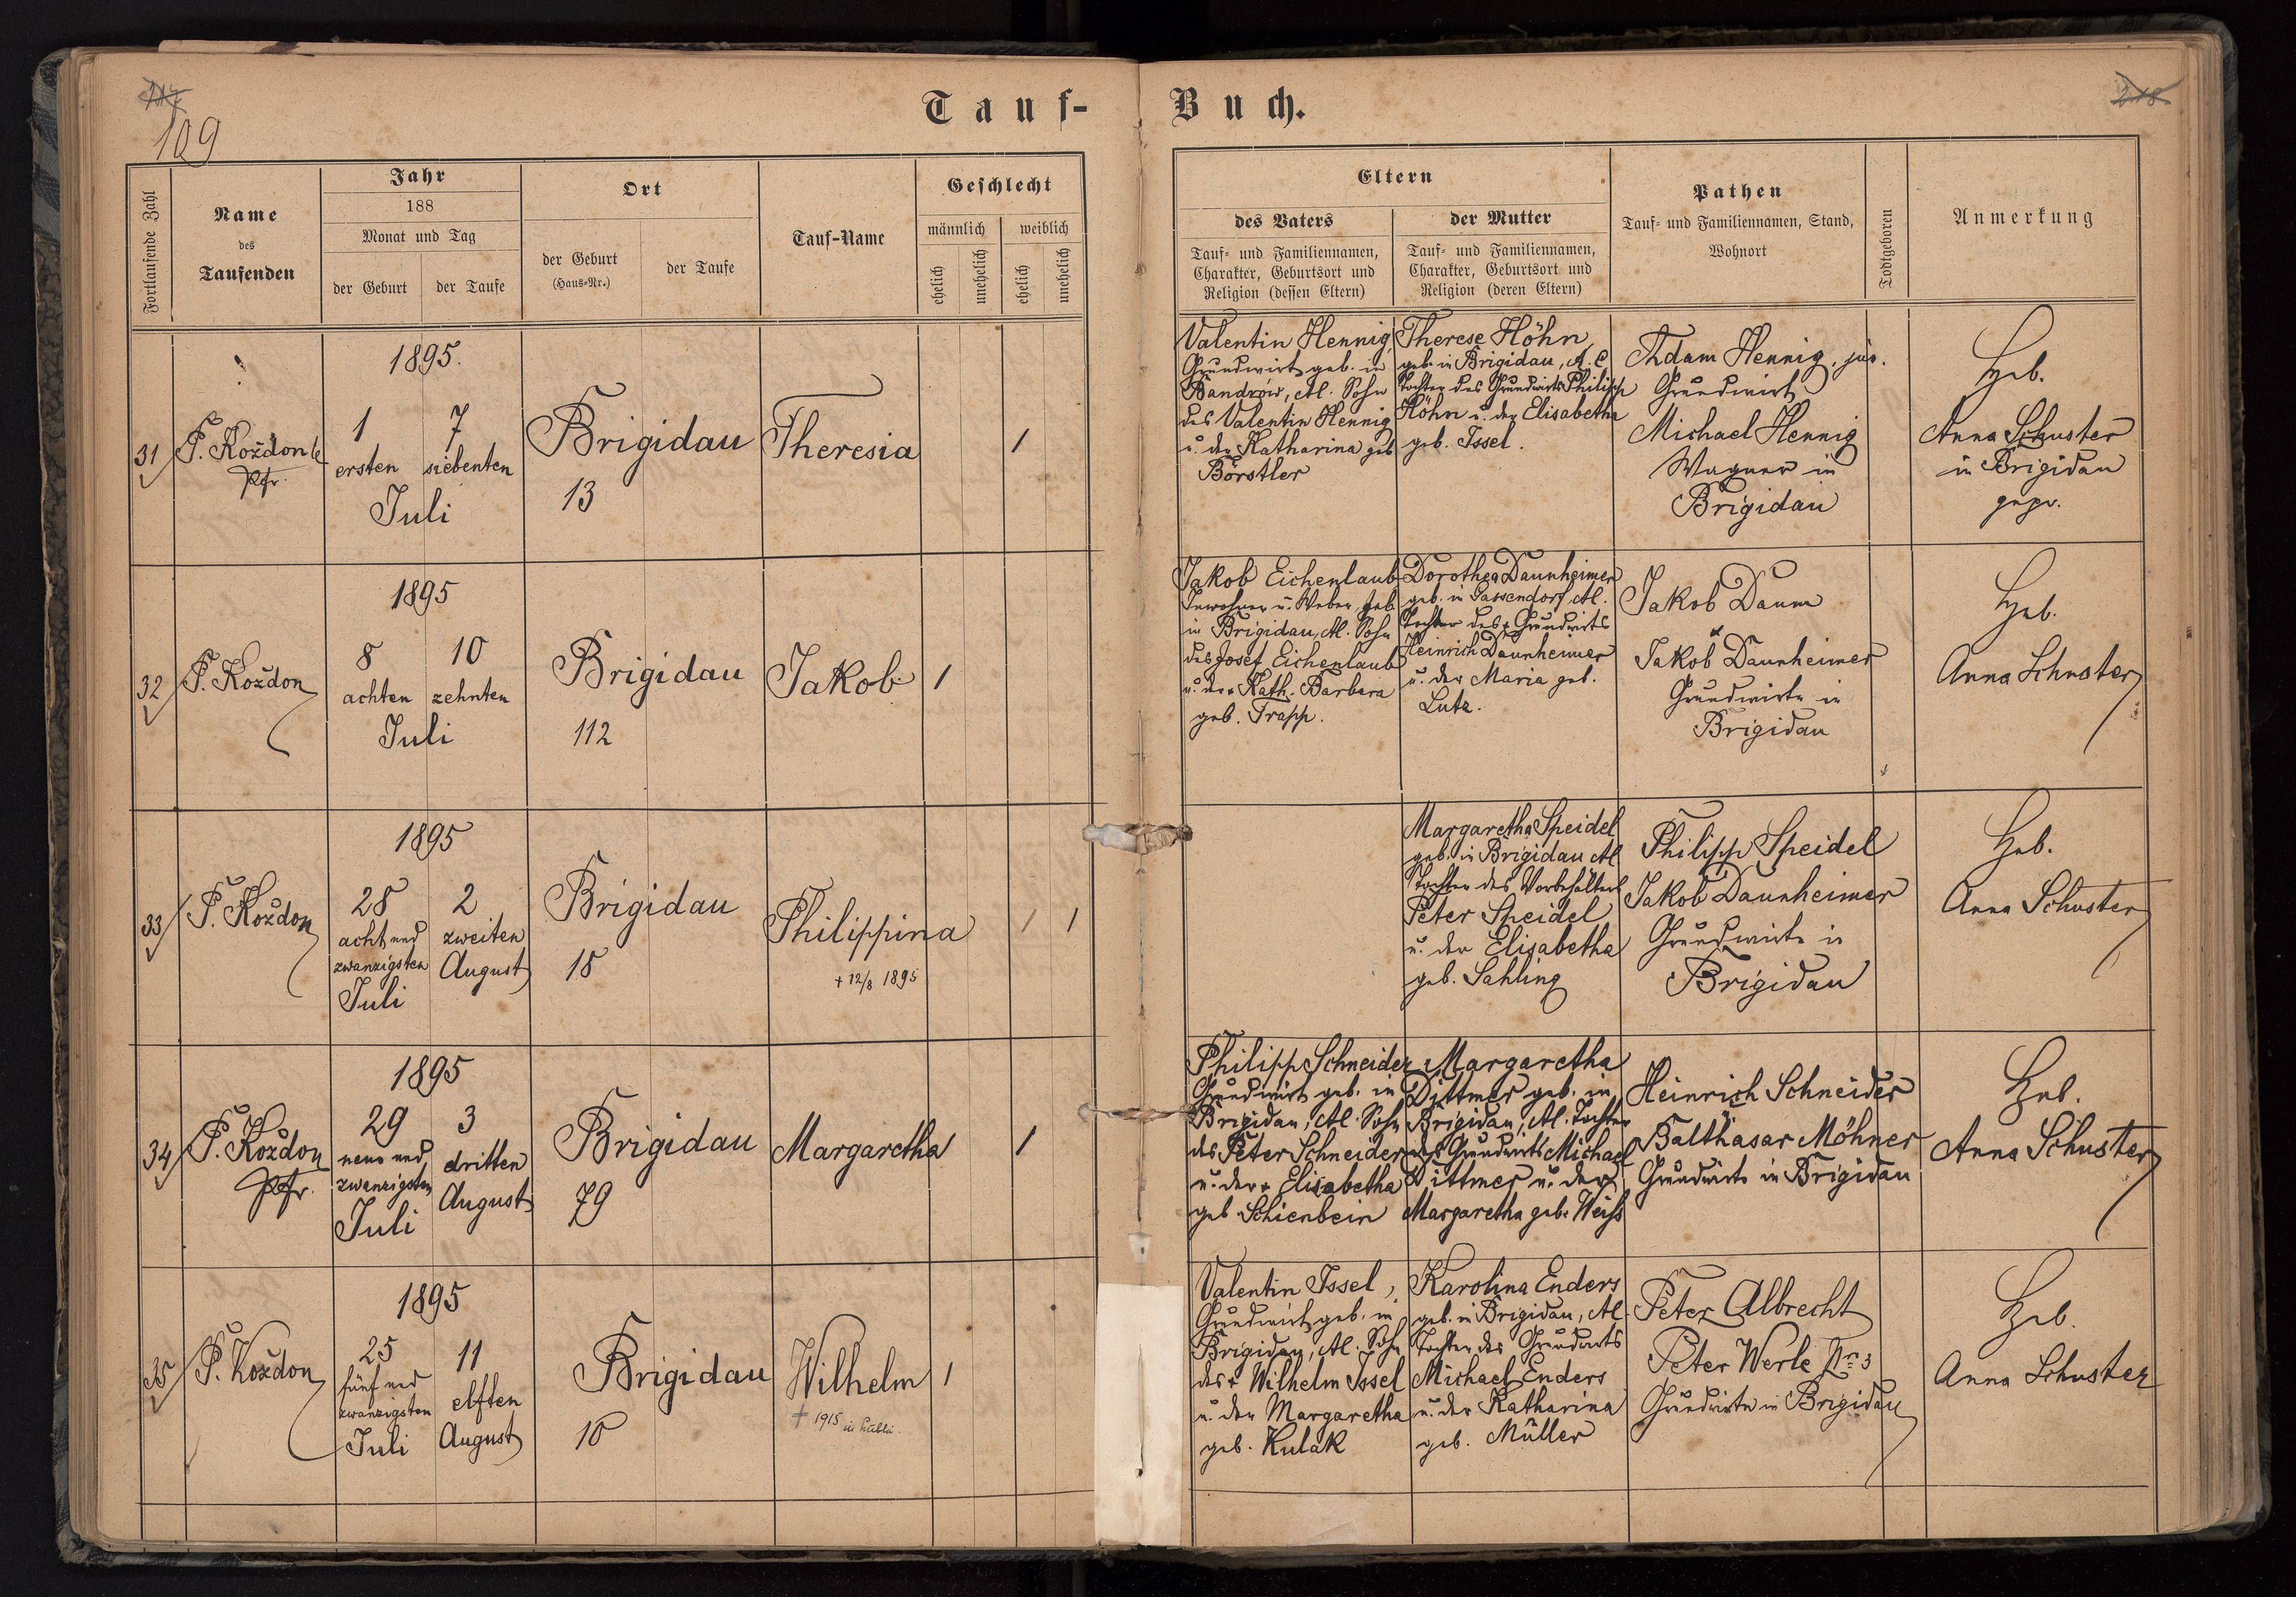 109
Tauf-
Buch.
218
Fortlaufende Zahl
Name
des
Taufenden
Jahr
188
Monat und Tag
der Geburt
der Taufe
Ort
der Geburt
(Haus-Nr.)
der Taufe
Tauf-Name
Geschlecht
männlich
weiblich
ehelich
unehelich
ehelich
unehelich
Eltern
des Vaters
Tauf- und Familiennamen,
Charakter, Geburtsort und
Religion (dessen Eltern)
der Mutter
Tauf- und Familiennamen,
Charakter, Geburtsort und
Religion (deren Eltern)
Pathen
Tauf- und Familiennamen, Stand,
Wohnort
Todtgeboren
Anmerkung
31
P. Kożdon
Pfr.
1895.
1
ersten
7
siebenten
Juli
Brigidau
13
Theresia
1
Valentin Hennig,
Grundwirt geb. in
Bandrów, Al. Sohn
des Valentin Hennig
u. der Katharina geb
Börstler
Therese Höhn,
geb. in Brigidau, A. C.
Tochter des Grundwirts Philipp
Höhn u. der Elisabetha
geb. Issel.
Adam Hennig, jun.
Grundwirt
Michael Hennig
Wagner in
Brigidau
Heb.
Anna Schuster
in Brigidau
gepr.
32
P. Kożdon
1895
8
achten
10
zehnten
Juli
Brigidau
112
Jakob
1
Jakob Eichenlaub
Inwohner u. Weber, geb.
in Brigidau, Al. Sohn
des Josef Eichenlaub
u. der + Kath. Barbara
geb. Trapp.
Dorothea Daunheimer
geb. in Gassendorf Al.
Tochter des + Grundwirts
Heinrich Daunheimer
u. der Maria geb.
Lutz.
Jakob Daum
Jakob Daunheimer
Grundwirte in
Brigidau
Heb.
Anna Schuster
33
P. Kożdon
1895
28
acht und
zwanzigsten
Juli
2
zweiten
August
Brigidau
18
Philippina
+ 12/8 1895
1
1
Margaretha Speidel
geb. in Brigidau Al
Tochter des Vorbehälters
Peter Speidel
u. der Elisabetha
geb. Sahling
Philipp Speidel
Jakob Daunheimer
Grundwirte in
Brigidau
Heb.
Anna Schuster
34
P. Kożdon
Pfr.
1895
29
neun und
zwanzigsten
Juli
3
dritten
August
Brigidau
79
Margaretha
1
Philipp Schneider
Grundwirt geb. in
Brigidau, Al. Sohn
des Peter Schneider
u. der + Elisabetha
geb Schienbein
Margaretha
Dittmer geb. in
Brigidau, Al. Tochter
des Grundwirts Michael
Dittmer u. der
Margaretha geb. Weiß
Heinrich Schneider
Balthasar Möhner
Grundwirte in Brigidau
Heb.
Anna Schuster
35
P. Kożdon
1895
25
fünf und
zwanzigsten
Juli
11
elften
August
Brigidau
10
Wilhelm
+ 1915 in
1
Valentin Issel,
Grundwirt geb. in
Brigidau, Al. Sohn
des + Wilhelm Issel
u. der Margaretha
geb. Kulak
Karolina Enders
geb. in Brigidau, Al
Tochter des Grundwirts
Michael Enders
u. der Katharina
geb. Müller
Peter Albrecht
Peter Werle Nr. 3
Grundwirte in Brigidau
Heb.
Anna Schuster